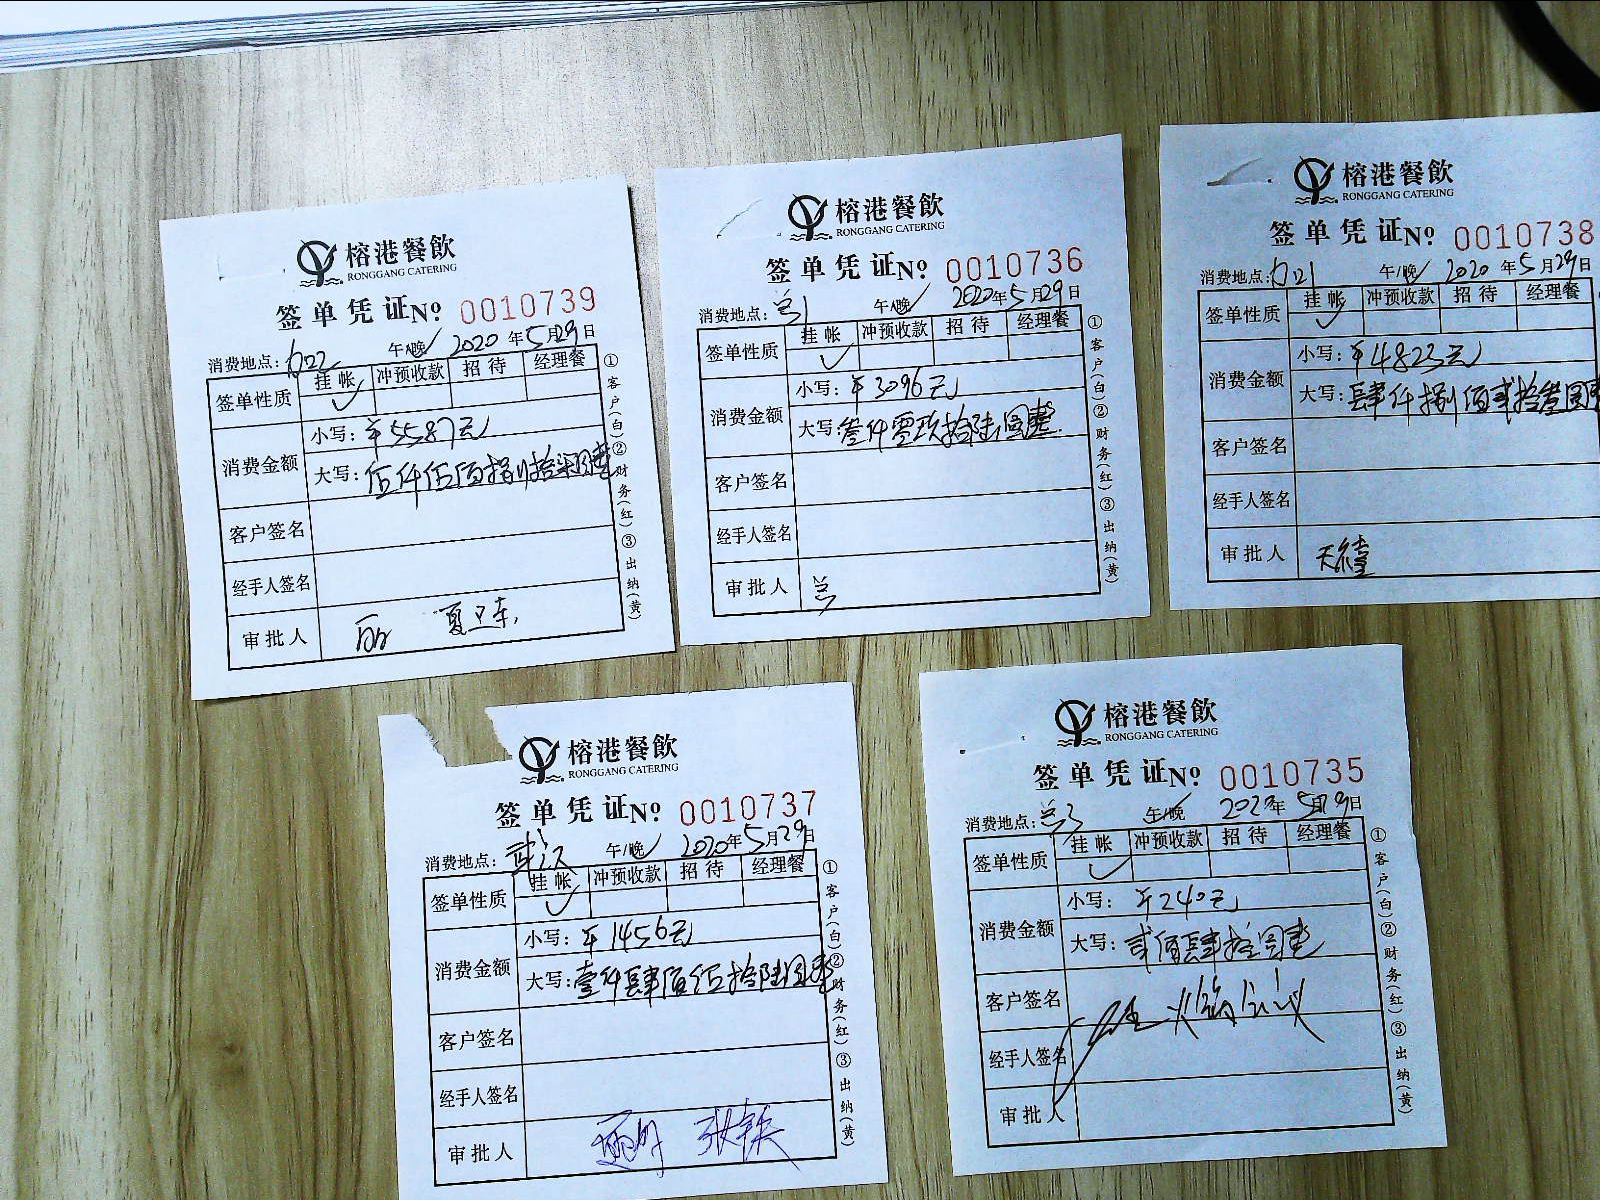 榕港餐飲
RONGGANG CATERING
签单凭证 No 0010739
消费地点: 午/晚 2020年5月29日
签单性质 挂帐 冲预收款 招待 经理餐
消费金额 小写: ¥5587元
大写: 伍仟伍佰捌拾柒圆整
客户签名
经手人签名
审批人
①客户(白)②财务(红)③出纳(黄)
榕港餐飲
RONGGANG CATERING
签单凭证 No 0010736
消费地点: 兰1 午/晚 2020年5月29日
签单性质 挂帐 冲预收款 招待 经理餐
消费金额 小写: ¥3096元
大写: 叁仟零玖拾陆圆整
客户签名
经手人签名
审批人 兰
①客户(白)②财务(红)③出纳(黄)
榕港餐飲
RONGGANG CATERING
签单凭证 No 0010738
消费地点: 午/晚 2020年5月29日
签单性质 挂帐 冲预收款 招待 经理餐
消费金额 小写: ¥4823元
大写: 肆仟捌佰贰拾叁圆整
客户签名
经手人签名
审批人
榕港餐飲
RONGGANG CATERING
签单凭证 No 0010737
消费地点: 午/晚 2020年5月29日
签单性质 挂帐 冲预收款 招待 经理餐
消费金额 小写: ¥1456元
大写: 壹仟肆佰伍拾陆圆整
客户签名
经手人签名
审批人
①客户(白)②财务(红)③出纳(黄)
榕港餐飲
RONGGANG CATERING
签单凭证 No 0010735
消费地点: 兰3 午/晚 2020年5月29日
签单性质 挂帐 冲预收款 招待 经理餐
消费金额 小写: ¥240元
大写: 贰佰肆拾圆整
客户签名
经手人签名
审批人
①客户(白)②财务(红)③出纳(黄)